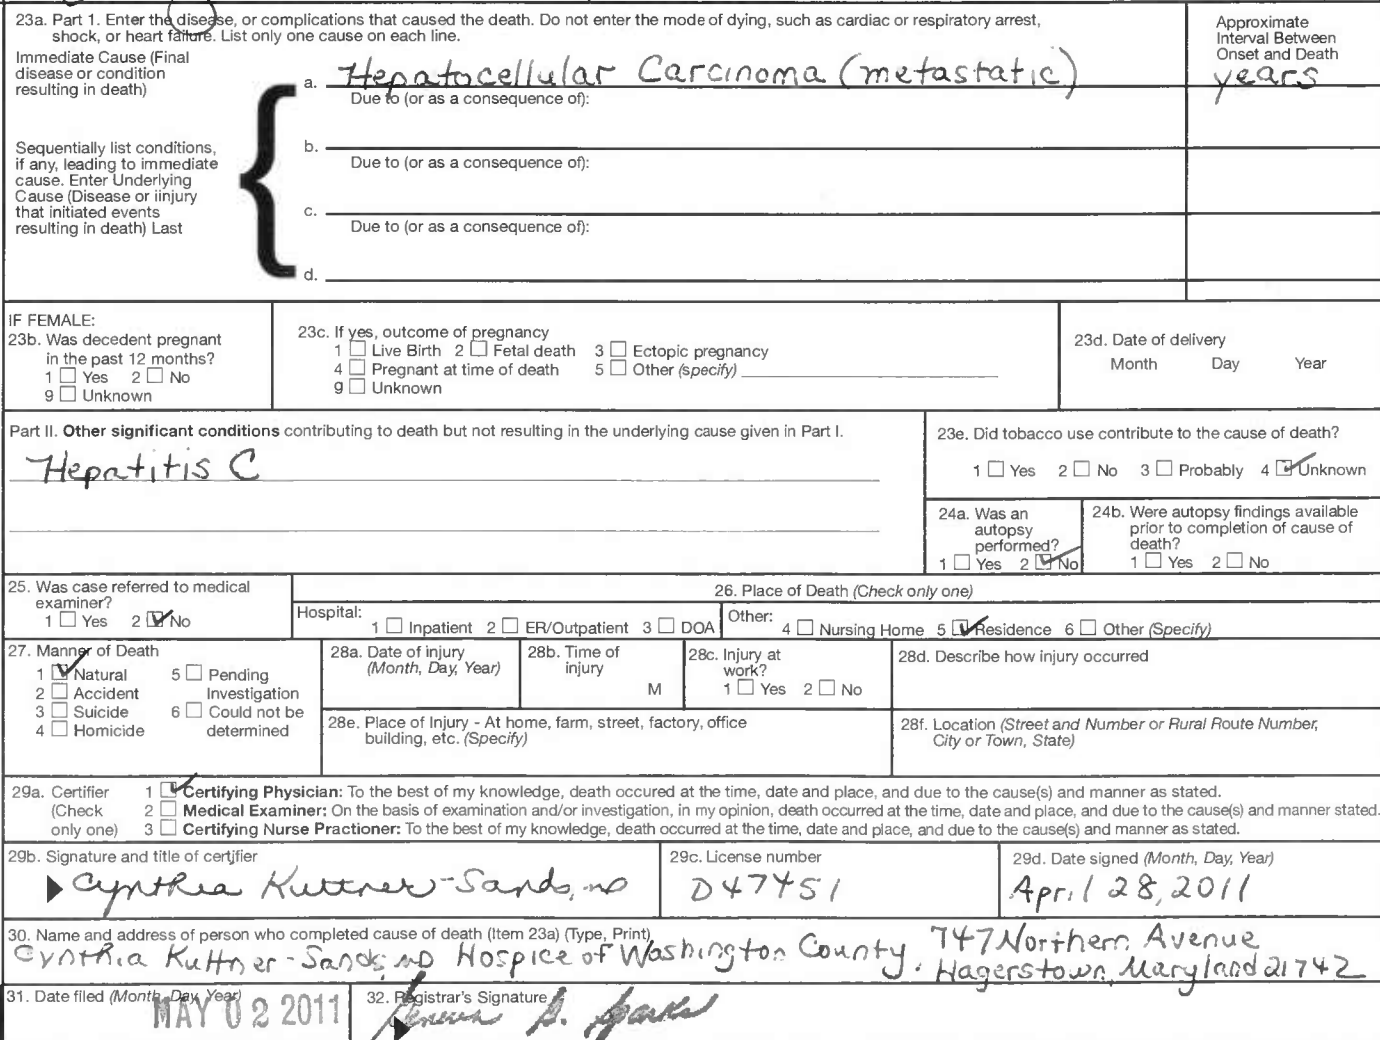 23a. Part 1. Enter the disease, or complications that caused the death. Do not enter the mode of dying, such as cardiac or respiratory arrest,
shock, or heart failure. List only one cause on each line.
Approximate
Interval Between
Onset and Death
Immediate Cause (Final
disease or condition
resulting in death)
a. Hepatocellular Carcinoma (metastatic) years
Due to (or as a consequence of):
Sequentially list conditions,
if any, leading to immediate
cause. Enter Underlying
Cause (Disease or iinjury
that initiated events
resulting in death) Last
b.
Due to (or as a consequence of):
c.
Due to (or as a consequence of):
d.
IF FEMALE:
23b. Was decedent pregnant
in the past 12 months?
1 Yes 2 No
9 Unknown
23c. If yes, outcome of pregnancy
1 Live Birth 2 Fetal death 3 Ectopic pregnancy
4 Pregnant at time of death 5 Other (specify)
9 Unknown
23d. Date of delivery
Month Day Year
Part II. Other significant conditions contributing to death but not resulting in the underlying cause given in Part I.
Hepatitis C
23e. Did tobacco use contribute to the cause of death?
1 Yes 2 No 3 Probably 4 Unknown
24a. Was an
autopsy
performed?
1 Yes 2 No
24b. Were autopsy findings available
prior to completion of cause of
death?
1 Yes 2 No
25. Was case referred to medical
examiner?
1 Yes 2 No
26. Place of Death (Check only one)
Hospital: 1 Inpatient 2 ER/Outpatient 3 DOA
Other: 4 Nursing Home 5 Residence 6 Other (Specify)
27. Manner of Death
1 Natural 5 Pending
2 Accident Investigation
3 Suicide 6 Could not be
4 Homicide determined
28a. Date of injury
(Month, Day, Year)
28b. Time of
injury
M
28c. Injury at
work?
1 Yes 2 No
28d. Describe how injury occurred
28e. Place of Injury - At home, farm, street, factory, office
building, etc. (Specify)
28f. Location (Street and Number or Rural Route Number,
City or Town, State)
29a. Certifier
(Check
only one)
1 Certifying Physician: To the best of my knowledge, death occured at the time, date and place, and due to the cause(s) and manner as stated.
2 Medical Examiner: On the basis of examination and/or investigation, in my opinion, death occurred at the time, date and place, and due to the cause(s) and manner stated.
3 Certifying Nurse Practioner: To the best of my knowledge, death occurred at the time, date and place, and due to the cause(s) and manner as stated.
29b. Signature and title of certifier
Cynthia Kuttner-Sands, MD
29c. License number
D47451
29d. Date signed (Month, Day, Year)
April 28, 2011
30. Name and address of person who completed cause of death (Item 23a) (Type, Print)
Cynthia Kuttner-Sands, MD Hospice of Washington County. 747 Northern Avenue
Hagerstown, Maryland 21742
31. Date filed (Month, Day, Year)
MAY 02 2011
32. Registrar's Signature